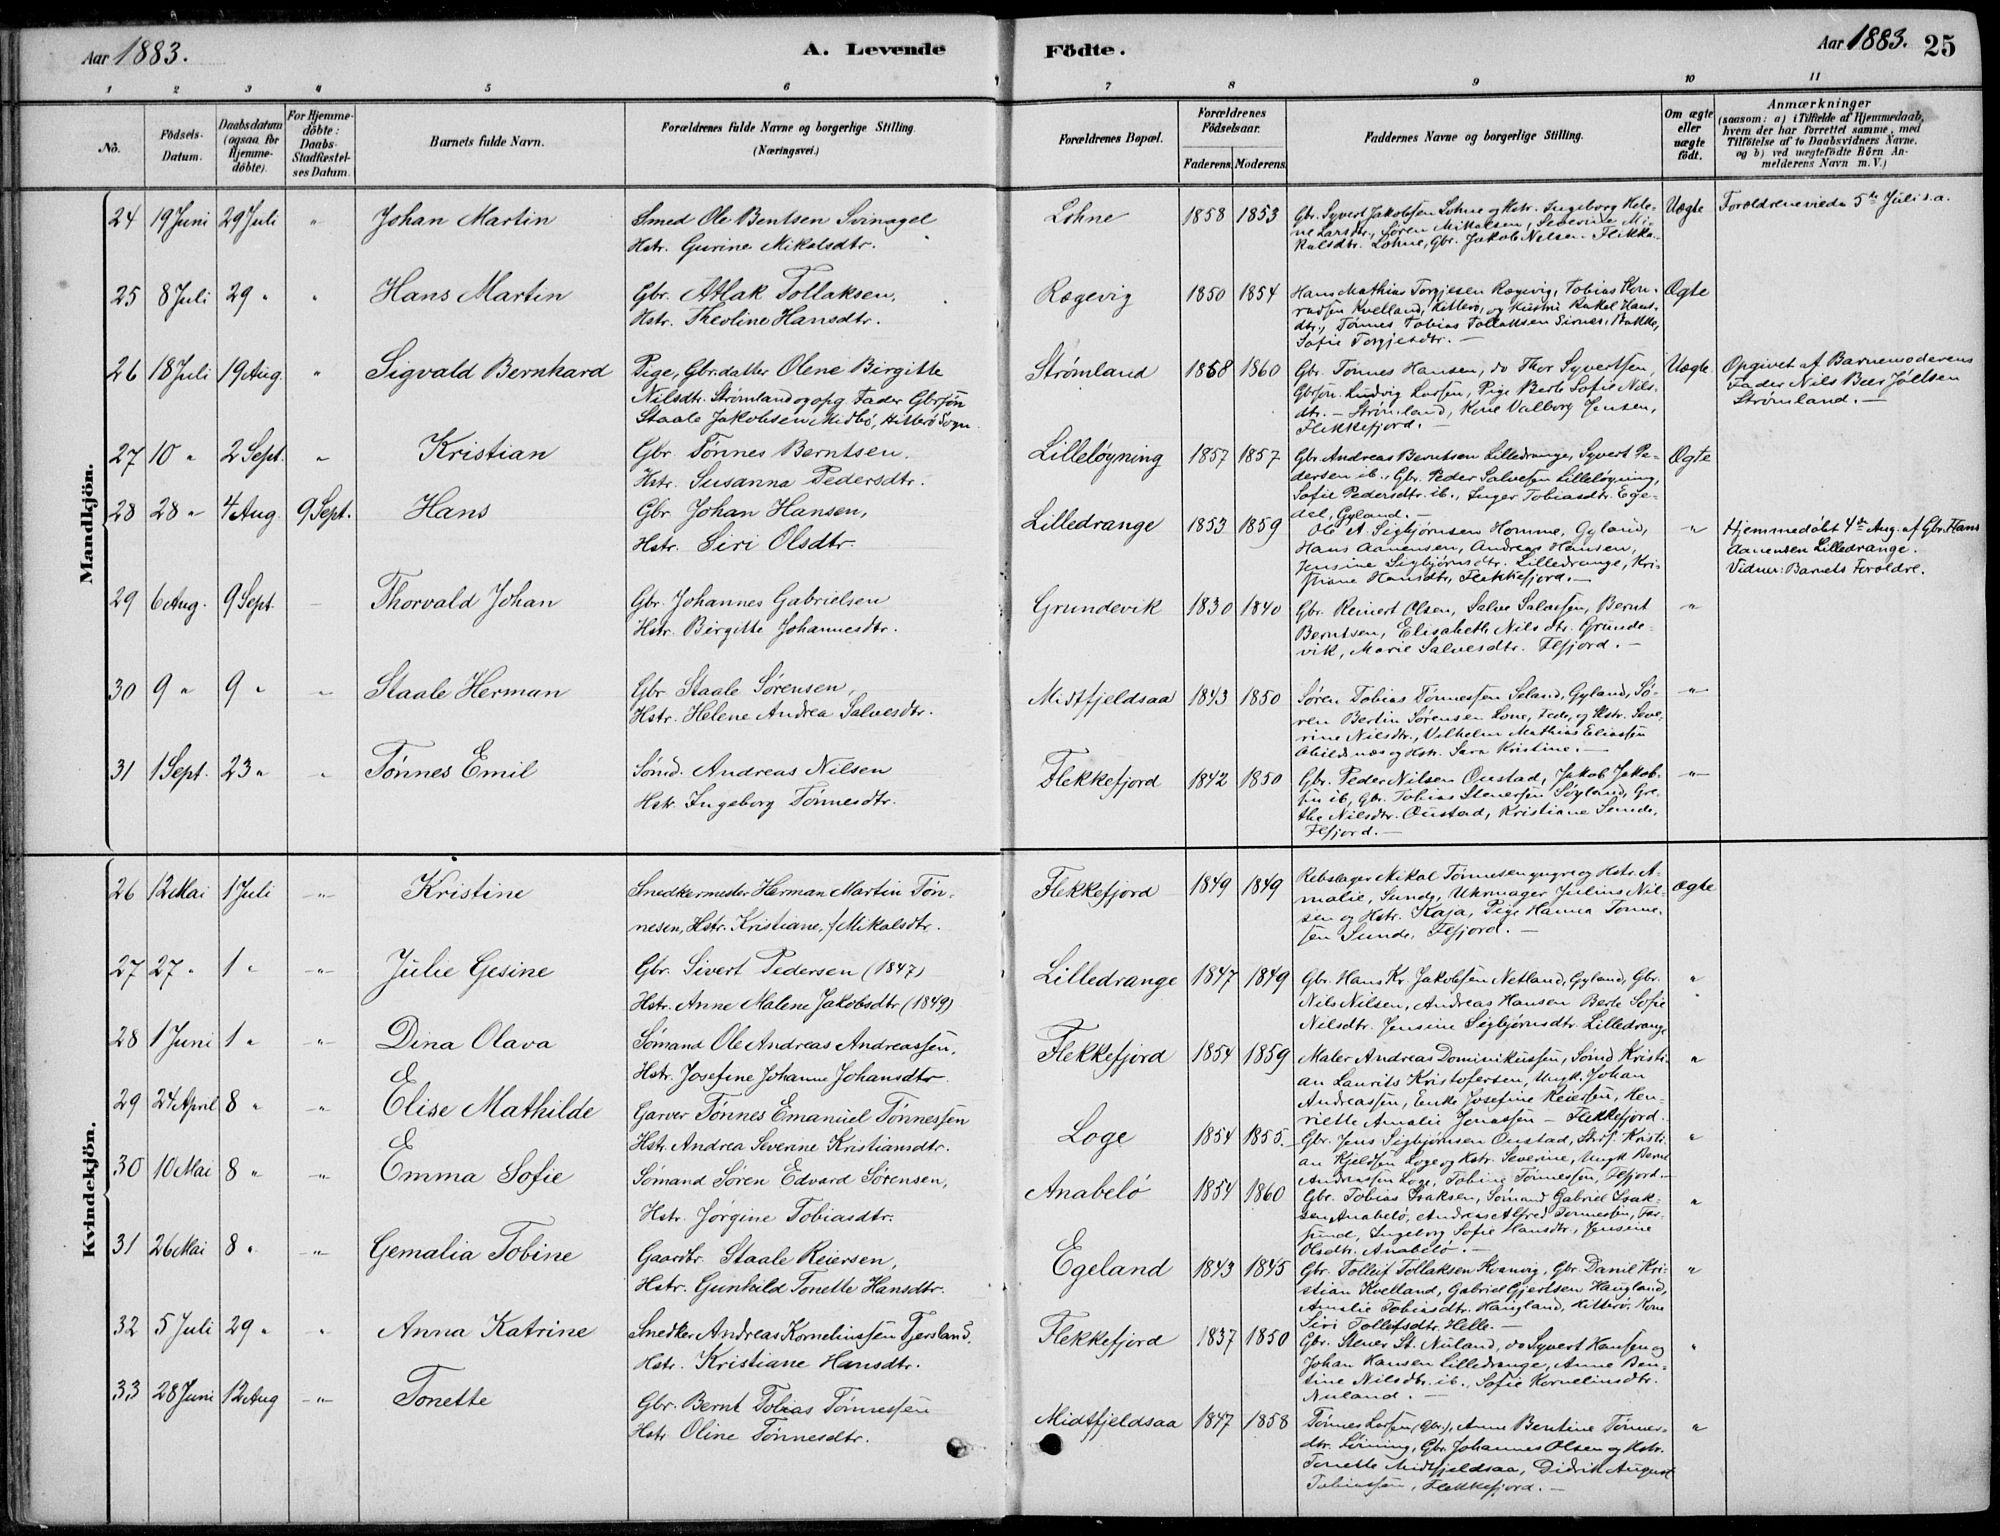 Aar 1883.
A. Levende Födte.
Aar 1883. 25
1 2 3 4 5 6 7 8 9 10 11
No.
Födsels-Datum.
Daabsdatum (ogsaa for Hjemme-döbte).
For Hjemme-döbte: Daabs-Stadfæstel-ses Datum.
Barnets fulde Navn.
Forældrenes fulde Navne og borgerlige Stilling. (Næringsvei.)
Forældrenes Bopæl.
Forældrenes Födselsaar. Faderens. Moderens.
Faddernes Navne og borgerlige Stilling.
Om ægte eller uægte födt.
Anmærkninger
(saasom: a) i Tilfælde af Hjemmedaab,
hvem der har forrettet samme, med
Tilföielse af to Daabsvidners Navne,
og b) ved uægtefödte Börn An-
melderens Navn m. V.)
Mandkjön.
24 19 Juni 29 Juli " Johan Martin
Smed Ole Bentsen Svinagel
Hstr. Gurine Mikalsdtr.
Lohne 1858 1853
Gbr. Syvert Jakobsen Lohne og Hstr. Ingeborg Hele-
ne Larsdtr., Søren Mikalsen, Severine Mi-
kalsdtr. Lohne, Gbr. Jakob Nilsen. Flikka.
Uægte
Forældrene viede 5te Juli s.a.
25 8 Juli 29 " " Hans Martin
Gbr. Atlak Tollaksen,
Hstr. Theoline Hansdtr.
Rægevig 1850 1854
Hans Mathias Torgjesen Rægevig, Tobias Kon-
radsen Kvelland, Hitterø, og Hustru Rakel Hans-
dtr., Tønnes Tobias Tollaksen Sirnes, Bakke,
Sofie Torgjesdtr. —
Ægte
26 18 Juli 19 Aug. " Sigvald Bernhard
Pige, Gbr.datter Olene Birgitte
Nilsdtr. Strømland og opg. Fader Gbrsøn
Staale Jakobsen Midbø, Hitterø Sogn.
Strømland 1858 1860
Gbr. Tønnes Hansen, do Thor Syvertsen,
Gbrsøn Ludvig Larsen, Pige Berte Sofie Nils-
dtr. — Strømland, Kone Valborg Jensen,
Flekkefjord. —
Uægte.
Opgivet af Barnemoderens
Fader Nils Jöelsen
Strømland. —
27 10 " 2 Sept. " Kristian
Gbr. Tønnes Berntsen.
Hstr. Susanna Pedersdtr.
Lilleløgning 1857 1857
Gbr. Andreas Berntsen Lilledrange, Syvert Pe-
dersen ib., Gbr. Peder Salvesen Lilleløgning,
Sofie Pedersdtr. ib., Inger Tobiasdtr. Ege-
del, Gyland. —
Ægte
28 28 " 4 Aug. 9 Sept. Hans
Gbr. Johan Hansen,
Hstr. Siri Olsdtr.
Lilledrange 1853 1859
Ole A. Sigbjørnsen Homme, Gyland,
Hans Aanensen, Andreas Hansen,
Jensine Sigbjørnsdtr. Lilledrange, Kri-
stiane Hansdtr, Flekkefjord. —
"
Hjemmedøbt 4de Aug. af Gbr. Hans
Aanensen Lilledrange.
Vidner: Barnets Forældre.
29 6 Aug. 9 Sept. — Thorvald Johan
Gbr. Johannes Gabrielsen
Hstr. Birgitte Johannesdtr.
Grundevik 1830 1840
Gbr. Reinert Olsen, Salve Salvesen, Bernt
Berntsen, Elisabeth Nilsdtr. Grunde-
vik, Marie Salvesdtr. Flfjord. —
"
30 9 " 9 " " Staale Herman
Gbr Staale Sørensen,
Hstr. Helene Andrea Salvesdtr.
Midtfjeldsaa 1843 1850
Søren Tobias Tønnessen Seland, Gyland, Sø-
ren Bertin Sørensen Lone, Fede, og Hstr. Seve-
rine Nilsdtr., Vilhelm Mathias Eliassen
Abildsnæs og Hstr. Sara Kristine. —
"
31 1 Sept. 23 " " Tønnes Emil
Sømd. Andreas Nilsen
Hstr. Ingeborg Tønnesdtr.
Flekkefjord 1842 1850
Gbr. Peder Nilsen Oustad, Jakob Jakob-
sen ib, Gbr. Tobias Stenersen Søyland, Gre-
the Nilsdtr. Oustad, Kristiane Sunde,
Flfjord. —
"
Kvindekjön.
26 12 Mai 1 Juli " Kristine
Snedkermester Herman Martin Tøn-
nesen, Hstr. Kristiane, f. Mikalsdtr.
Flekkefjord 1849 1849
Rebslager Mikal Tønnesen yngre og Hstr. A-
malie, Sunde, Uhrmager Julius Nil-
sen og Hstr. Kaja, Pige Hanna Tønne-
sen Sunde, Flfjord. —
Ægte
27 27 " 1 " " Julie Gesine
Gbr. Sivert Pedersen (1847)
Hstr. Anne Malene Jakobsdtr (1849)
Lilledrange 1847 1849
Gbr. Hans Kr. Jakobsen Netland, Gyland, Gbr.
Nils Nilsen, Andreas Hansen Berte Sofie
Nilsdtr. Jensine Sigbjørnsdtr. Lilledrange
"
28 1 Juni 1 " " Dina Olava
Sømand Ole Andreas Andreassen,
Hstr. Josefine Johanne Johansdtr.
Flekkefjord 1854 1859
Maler Andreas Dominikussen, Sømd Kristi-
an Laurits Kristofersen, Ungk. Johan
Andreassen, Enke Josefine Reiersen, Hen-
riette Amalie Jonassen — Flekkefjord.
"
29 24 April 8 " " Elise Mathilde
Garver Tønnes Emanuel Tønnessen
Hstr. Andrea Severine Kristiansdtr.
Loge 1854 1855.
Gbr. Jens Sigbjørnsen Oustad, Kristi-
an Kjeldsen Loge og Hstr. Severine, Ungk Bernt
Andreassen Loge, Tobine Tønnessen, Flfjord. —
"
30 10 Mai 8 " " Emma Sofie
Sømand Søren Edvard Sørensen,
Hstr. Jørgine Tobiasdtr.
Anabelø 1854 1860
Gbr. Tobias Isaksen, Sømand Gabriel Isak-
sen Anabelø, Andreas Alfred Tønnesen, Far-
sund, Ingeborg Sofie Hansdtr., Jensine
Olsdtr. Anabelø. —
"
31 26 Mai 8 " " Gemalia Tobine
Gaardbr. Staale Reiersen,
Hstr. Gunhild Tonette Hansdtr.
Egeland 1843 1845
Gbr. Tollef Tollaksen Kvanvig, Gbr. Daniel Kri-
stian Kvelland, Gabriel Gjertsen Haugland,
Amalie Tobiasdtr. Haugland, Hitterø, Kone
Siri Tollefsdtr. Helle. —
"
32 5 Juli 29 " " Anna Katrine
Snedker Andreas Korneliussen Tjersland,
Hstr. Kristiane Hansdtr.
Flekkefjord 1837 1850
Gbr. Stener St. Nuland, do Syvert Hansen og
Johan Hansen Lilledrange, Anne Ben-
tine Nilsdtr. ib., Sofie Korneliusdtr.
Nuland. —
"
33 28 Juni 12 Aug " Tonette
Gbr. Bernt Tobias Tønnessen
Hstr Oline Tønnesdtr.
Midtfjeldsaa 1847 1858
Tønnes Larsen (Gbr), Anne Bentine Tønnes-
dtr. Løining, Gbr. Johannes Olsen og Hstr.
Tonette Midtfjeldsaa, Didrik August
Tobiassen, Flekkefjord. —
"